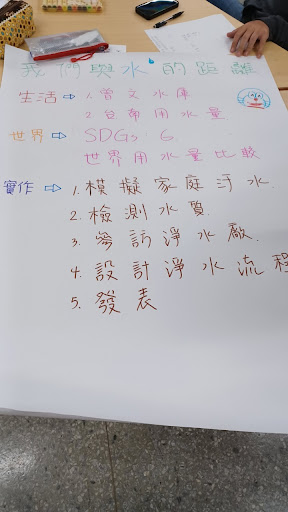 我們與水的距離
生活⇨ 1. 曾文水庫
2. 台南用水量
世界⇨ SDGs 6.
世界用水量比較
實作⇨ 1. 模擬家庭汙水.
2. 檢測水質.
3. 參訪淨水廠.
4. 設計淨水流程
5. 發表